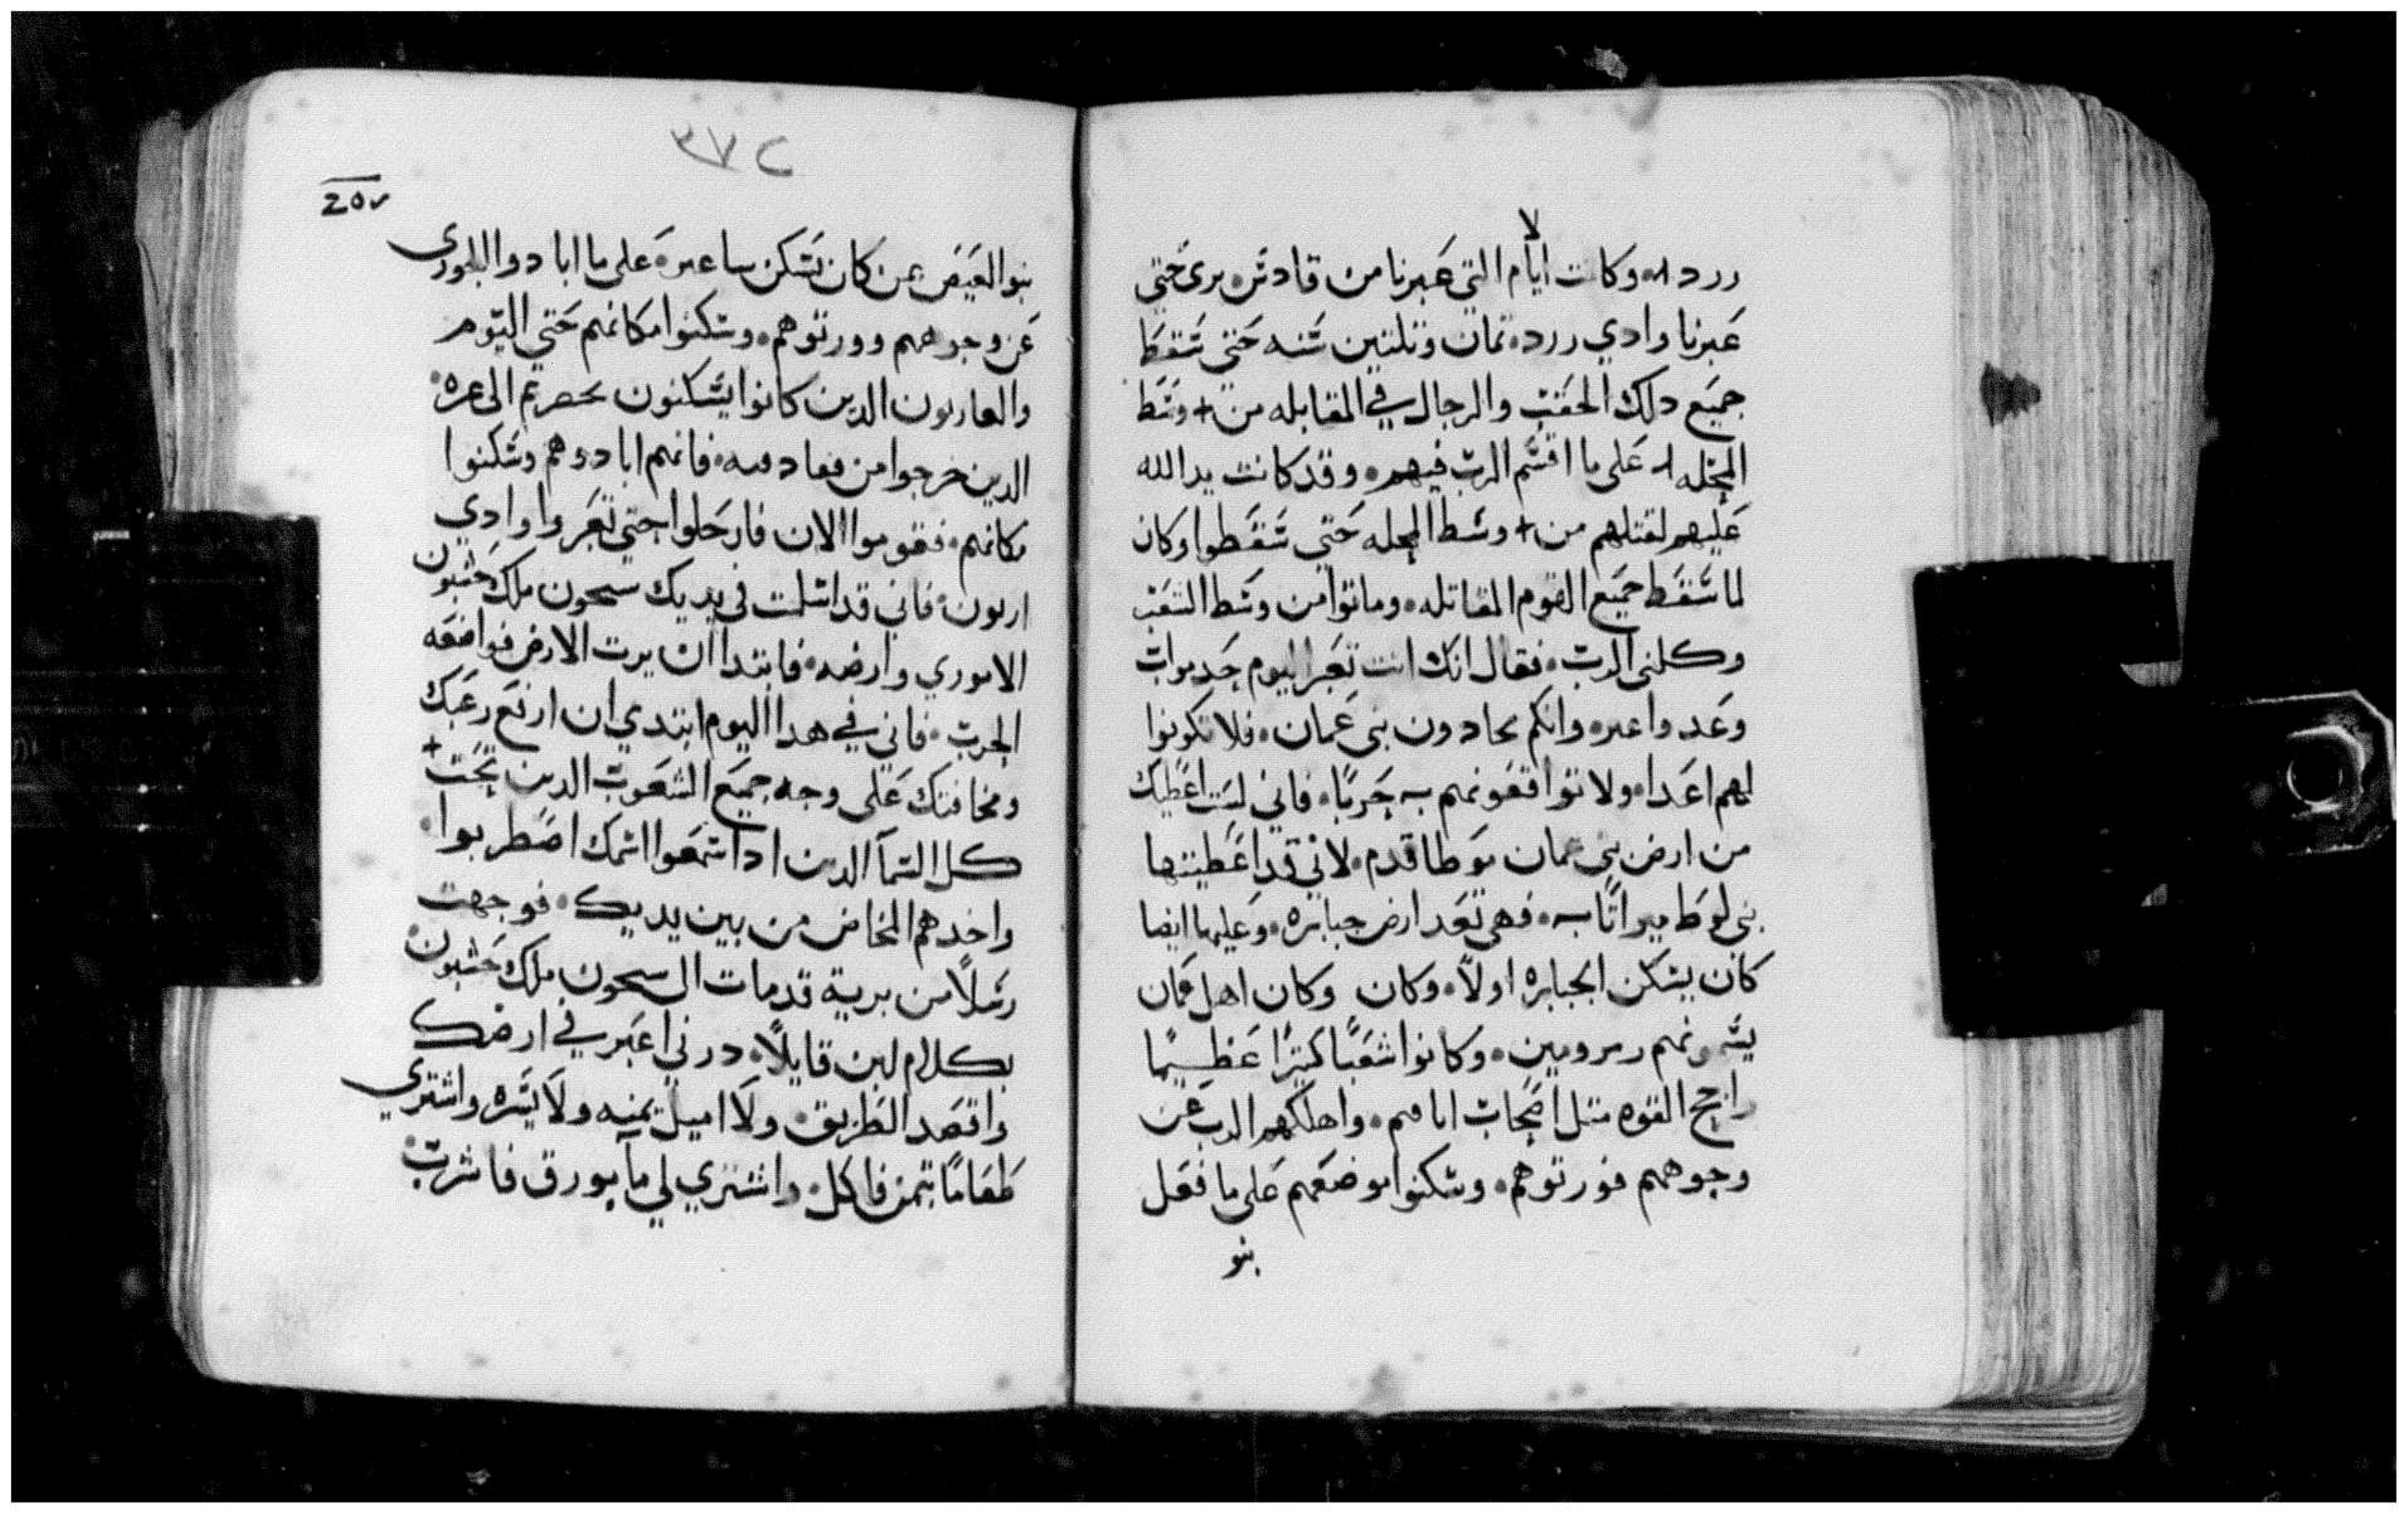 لا
ررد ⁘ وكانت ايام التي عبرنا من قادش برى حتي
عبرنا وادي ررد ⁘ تمان وتلتين سنه حتي سقط
جميع دلك الحقب والرجال في المقابله من + وسط
المحله ⁘ على ما اقسم الرب فيهم ⁘ وقد كانت يد الله
عليهم لقتلهم من + وسط المحله حتي سقطوا وكان
لما سقط جميع القوم المقاتله ⁘ وماتوا من وسط الشعب
وكلمني الرب ⁘ فقال انك انت تعبر اليوم حد مواب
وعد واعبر ⁘ وانكم تحادون بني عمان ⁘ فلا تكونوا
لهم اعدا ⁘ ولا تواقعونهم به حربًا ⁘ فاني لست اعطيك
من ارض بني عمان موطا قدم ⁘ لاني قد اعطيتها
بني لوط ميراتًا به ⁘ فهي تعد ارض جبابره ⁘ وعليها ايضا
كان يسكن الجبابره اولاً ⁘ وكان وكان اهل عمان
يسمونهم رمرومين ⁘ وكانوا شعبًا كتيرًا عظيمًا
راجح القوه متل اصحاب اناقيم ⁘ واهلكهم الرب عن
وجوههم فورتوهم ⁘ وسكنوا موضعهم على ما فعل
بنو
٣٧٢
بنو العيص بمن كان يسكن ساعير ⁘ على ما ابادوا الحوري
عن وجوههم وورتوهم ⁘ وسكنوا مكانهم حتي اليوم
والعاريون الدين كانوا يسكنون بحصريم الى عره ⁘
الدين خرجوا من فعادميه ⁘ فانهم ابادوهم وسكنوا
مكانهم ⁘ فقوموا الان فارحلوا حتي تعبروا وادي
ارنون ⁘ فاني قد اسلمت في يديك سيحون ملك حسبون
الاموري وارضه ⁘ فابتدا ان يرت الارض فواقعه
الحرب ⁘ فاني في هدا اليوم ابتدي ان ارفع رعبك
ومخافتك على وجه جميع الشعوب الدين تحت +
كل السمآ الدين ادا سمعوا اسمك اضطربوا ⁘
واخدهم المخاض من بين يديك ⁘ فوجهت
رسلاً من برية قدمات الى سيحون ملك حسبون ⁘
بكلام لين قايلاً ⁘ درني اعبر في ارضك
واقصد الطريق ⁘ ولا اميل يمنه ولا يسره واشتري
طعامًا بتمن فاكل ⁘ واشتري لي مآ بورق فاشرب ⁘